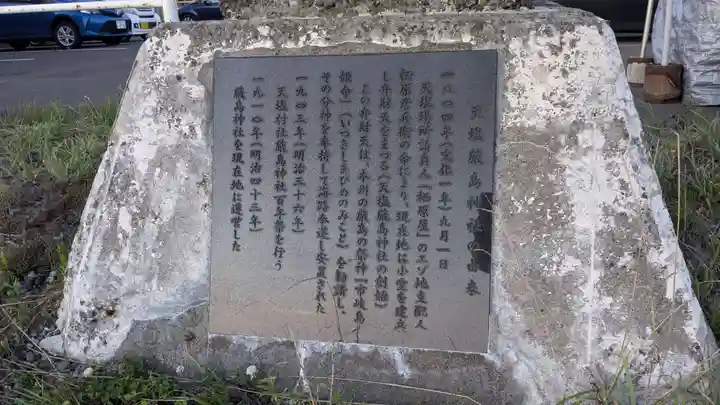 天塩嚴島神社の由来
一八〇四年(文化一年)九月一日
天塩場所請負人「栖原屋」のエゾ地支配人
栖原彦兵衛の命により、現在地に小堂を建立
し弁財天をまつる(天塩嚴島神社の創始)
この弁財天は、本州の嚴島の祭神「市岐島
姫命」(いつきしまひめのみこと)を勧請し、
その分神を奉持して海路奉遷し安置された
一九〇三年(明治三十六年)
天塩村社嚴島神社百年祭を行う
一九一〇年(明治四十三年)
嚴島神社を現在地に造営した